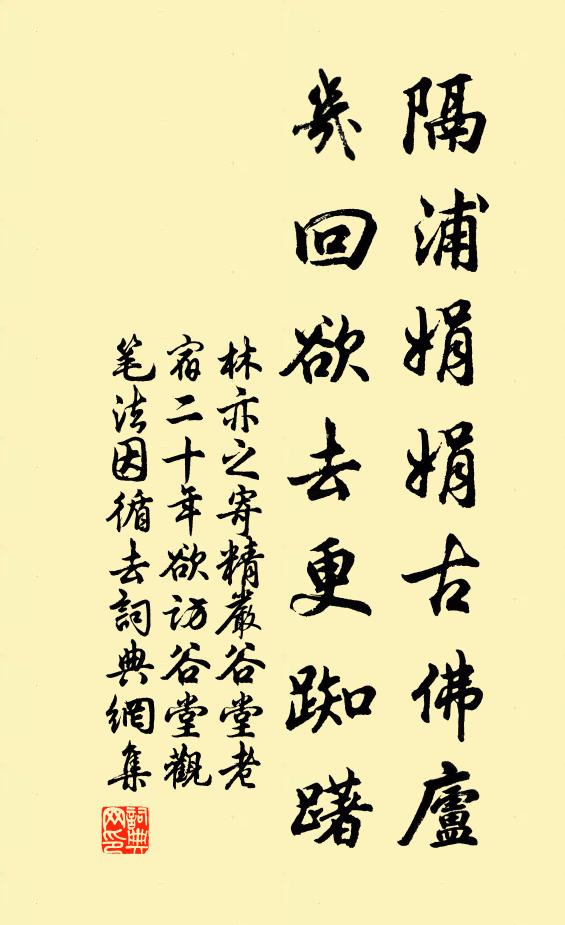 隔浦娟娟古佛廬
幾回欲去更踟躇
林亦之寄精嚴谷堂老
宿二十年欲訪谷堂觀
笔法因循去詞典網集
詞典網印